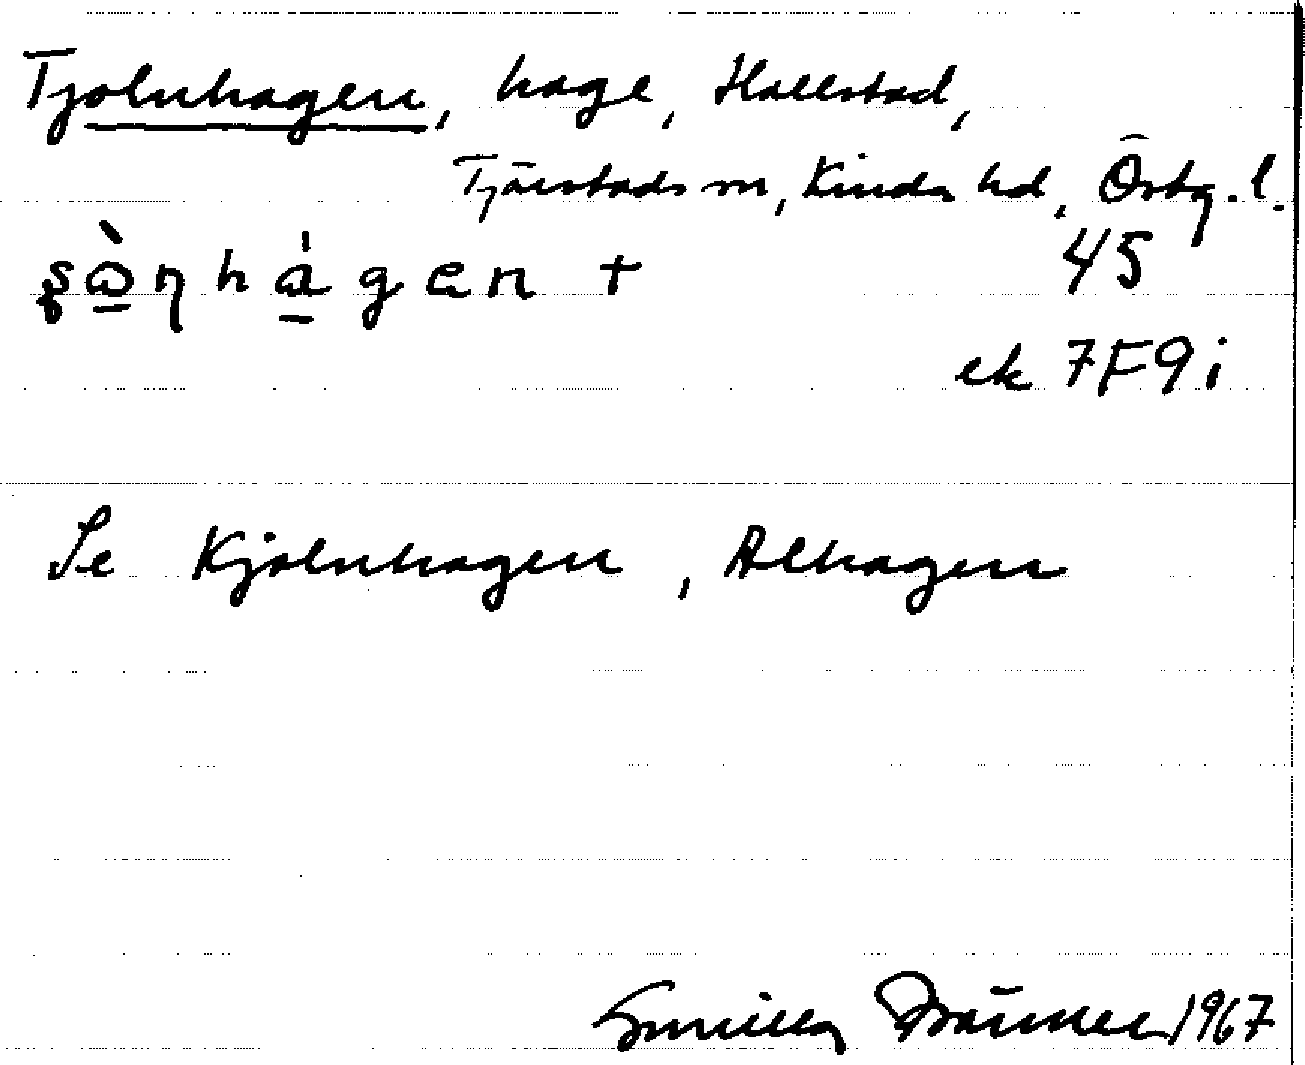 Tjolnhagen, hage, Hallestad,
Tjärstads sn, Kinda hd, Östg. l.
hagen + 45
ek 7F9i
Se Kjolnhagen, Alhagen
Gunilla 1967